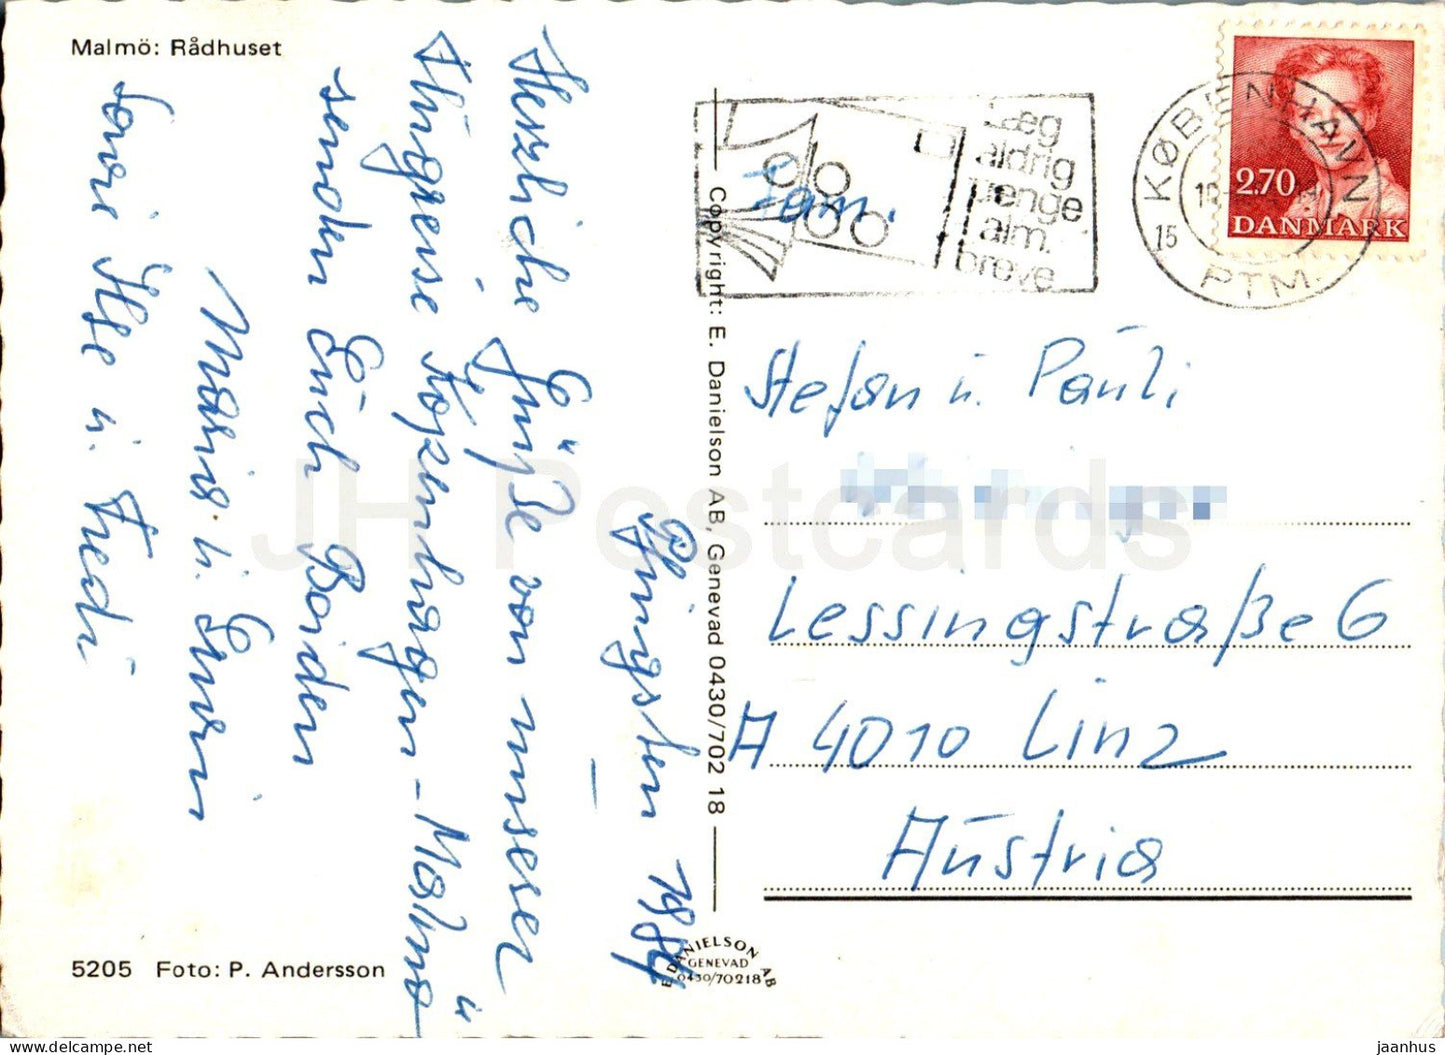 Malmö: Rådhuset
Pfingsten 1984
Herzliche Grüße von unserer
Flugreise Kopenhagen - Malmö
senden Euch Beiden
Maria u. Erwin
sowie Ilse u. Fredi
5205 Foto: P. Andersson
Copyright: E. Danielson AB, Genevad 0430/702 18
E DANIELSON AB
GENEVAD
0430/70218
Læg
aldrig
penge
i alm.
breve
KØBENHAVN
15
PTM
2.70
DANMARK
Fam.
Stefan u. Pauli
Lessingstraße 6
A 4010 Linz
Austria
JH Postcards
delcampe.net
jaanhus